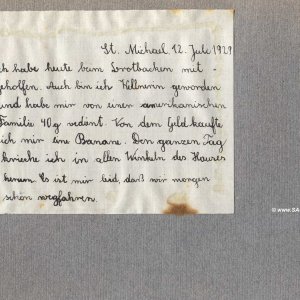 St. Michael, 12. Juli 1929
ch habe heute beim Brotbacken mit-
geholfen. Auch bin ich Kellnerin geworden
und habe mir von einer amerikanischen
Familie 40 g verdient. Von dem Geld kaufte
ich mir eine Banane. Den ganzen Tag
krieche ich in allen Winkeln des Hauses
herum. Es ist mir leid, daß wir morgen
schon wegfahren.
© www.SA